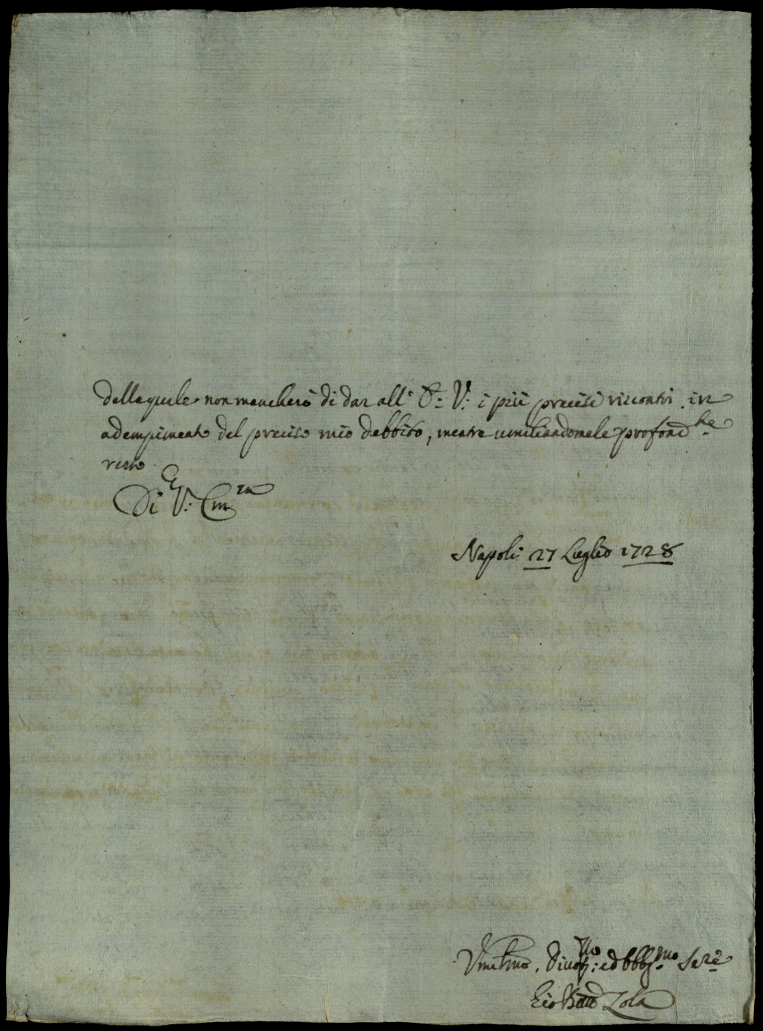 della quale non mancherò di dar all' E: V: i più precisi riscontri in
adempimento del preciso mio debbito, mentre umiliandomele profond.te
resto
Di V: E: Em.za
Napoli 27 Luglio 1728
Umilmo, Divot.mo: ed obblg.mo Ser.e
Gio Batta Zola